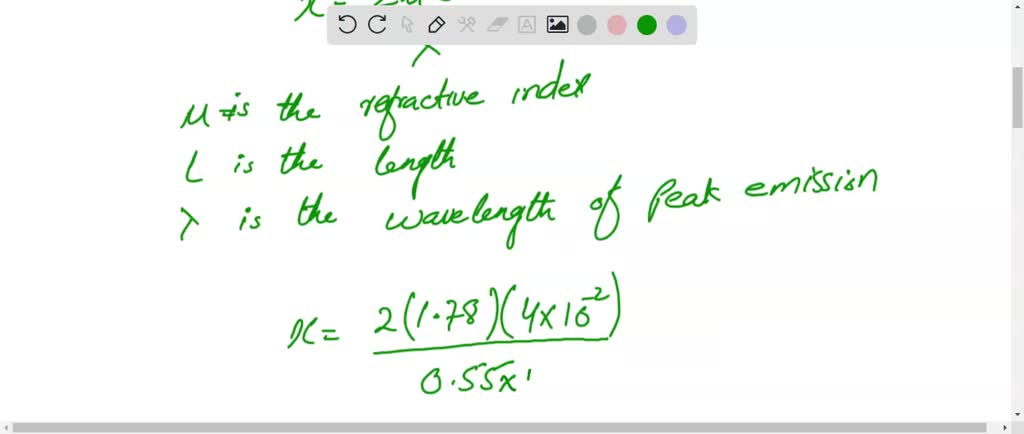 x=
λ
μ is the refractive index
L is the length
λ is the wavelength of Peak emission
x = 2(1.78)(4x10⁻²)
0.55x1